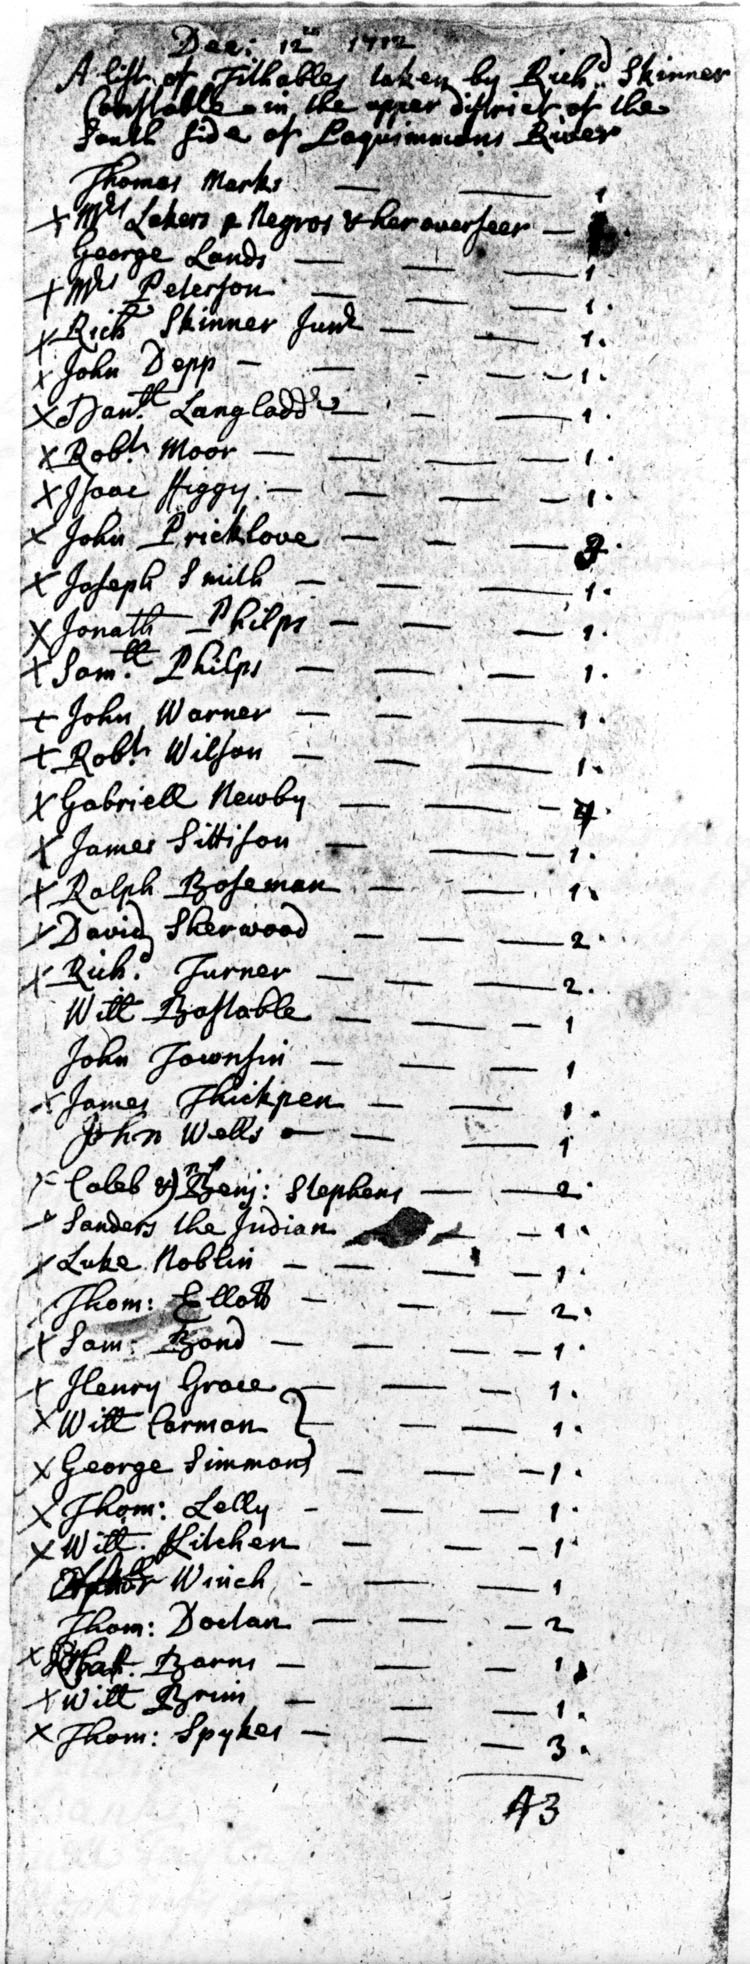 Dec: 12th 1712
A list of Tithables taken by Richd Skinner
Constable in the upper district of the
South Side of Paquimmons River
Thomas Marks — — 1
+ Mrs Lakers Negros & her overseer —
George Lands — — — 1
+ Mrs Peterson — — — 1.
x Richd Skinner Junr — — 1.
x John Depp — — - - — 1.
x Danll Langladd — - — 1.
x Robt Moor — — — — 1.
x Isaac Higgy: — — — — 1.
x John Pricklove — - —
x Joseph Smith — — — 1.
x Jonath Philps — — — 1.
+ Samll Philps — — — 1.
+ John Warner — — — 1.
+ Robt Wilson — — — 1.
x Gabriell Newby — — - 4.
x James Sittison — — — 1.
x Ralph Boseman — — 1
x David Sherwood — — — 2.
x Richd Turner — — — 2.
Will Bastable — — - 1
John Townsin — — — 1
x James Thickpen — — 1.
John Wells — — — 1
x Caleb & Benj: Stephens — — 2.
x Sanders the Indian — — 1.
x Luke Noblin — — — — 1.
Thom: Ellott — — — 2.
x Sam: Bond — — — — 1.
x Henry Grace — — — 1.
x Will Carman } — — — 1.
x George Simmons — — — 1.
x Thom: Lelly - — — 1.
x Will Kitchen — — - 1.
Winch - — — 1
Thom: Doctan — — — 2
x Barns — — — 1
x Will Brim — — — 1.
x Thom: Spykes — — — 3.
43